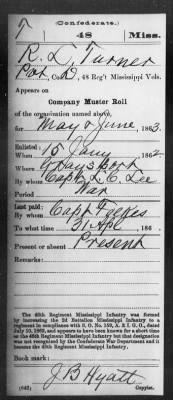 T
(Confederate.)
48
Miss.
R. L. Turner
Pvt, Co. D, 48 Reg't Mississippi Vols.
Appears on
Company Muster Roll
of the organization named above,
for May & June, 1863.
Enlisted:
When 15 Jany, 186
Where
By whom Capt. L. C. Lee
Period War
Last paid:
By whom Capt
To what time 31 Apl, 186
Present or absent Present
Remarks:
The 48th Regiment Mississippi Infantry was formed
by increasing the 2d Battalion Mississippi Infantry to a
regiment in compliance with S. O. No. 159, A. & I. G. O., dated
and appears to have been known for a short time
as the 45th Regiment Mississippi Infantry but this designation
was not recognized by the Confederate War Department and it
became the 48th Regiment Mississippi Infantry.
Book mark:
(642)
J. B. Hyatt
Copyist.